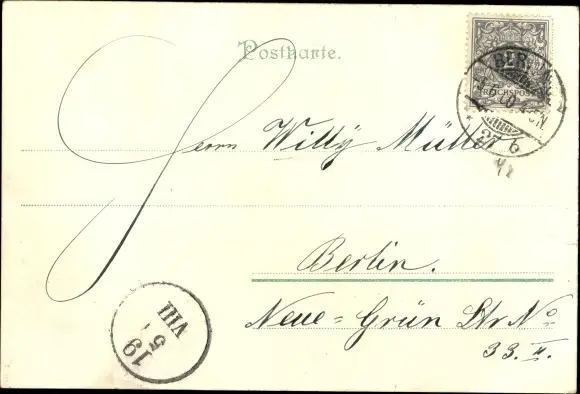 Postkarte.
REICHSPOST
Herrn Willy Müller
Berlin.
Neue=Grün Str No
33. II.
19
5
VIII